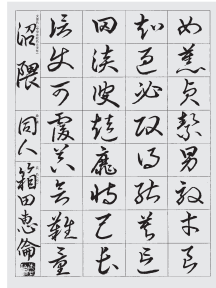 女慕貞絜男效才良
知過必改得能莫忘
罔談彼短靡恃己長
信使可覆器欲難量
沼隈 同人 箱田惠倫